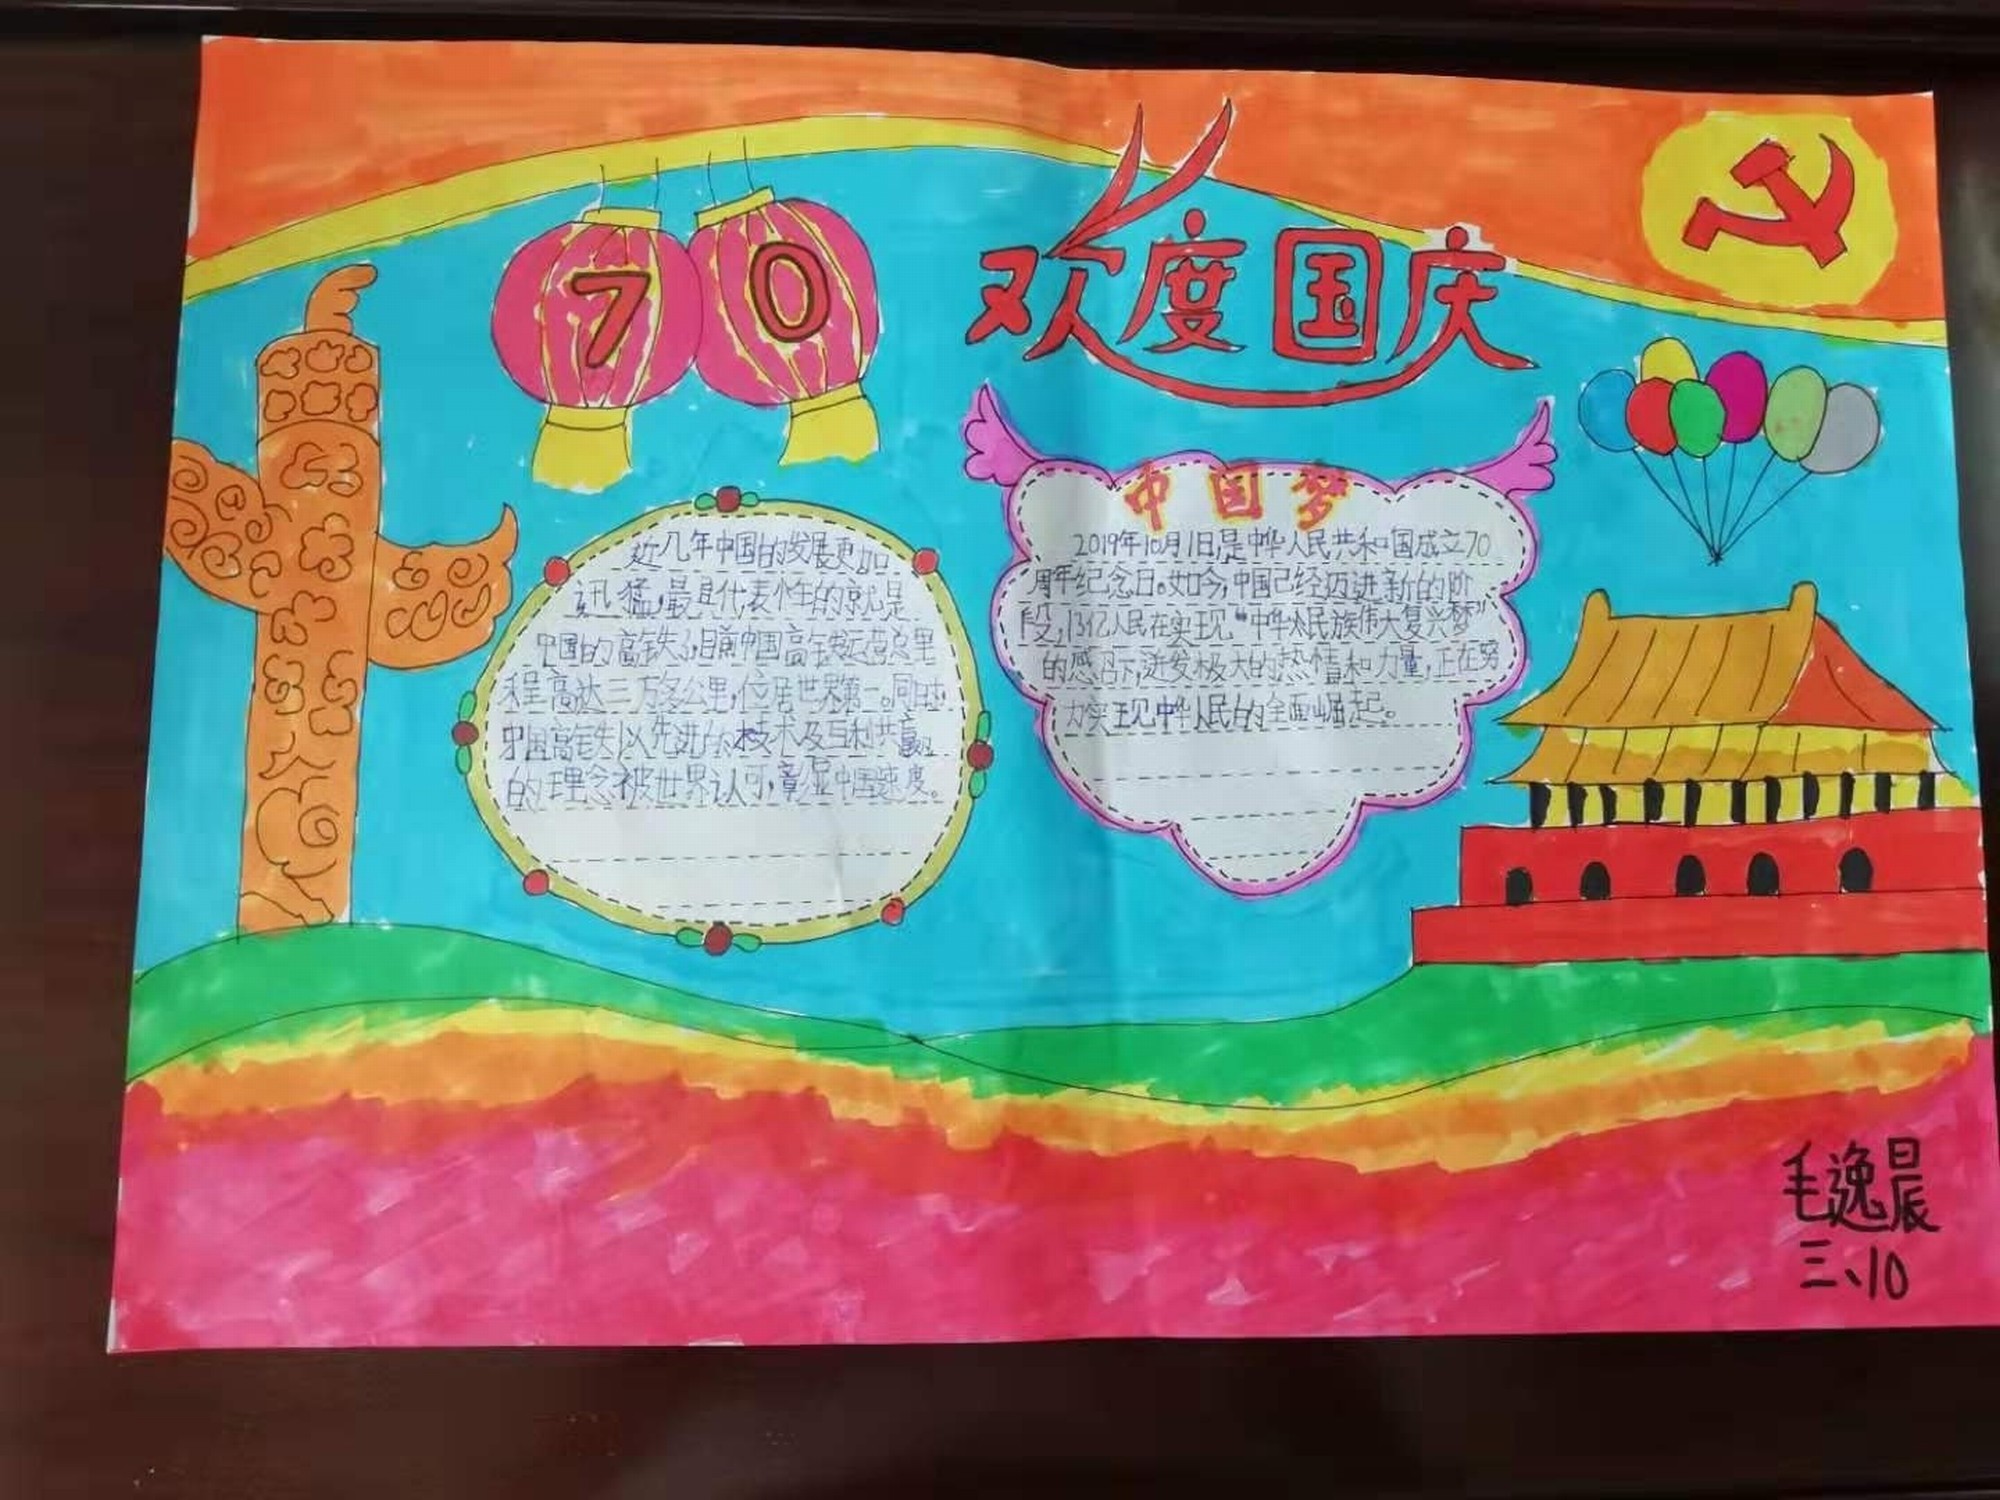 70
欢度国庆
近几年中国的发展更加
迅猛,最具代表性的就是
中国的高铁了,目前中国高铁运营总里
程高达三万多公里,位居世界第一。同时,
中国高铁以先进的技术及互利共赢
的理念被世界认可,彰显中国速度。
中国梦
2019年10月1日,是中华人民共和国成立70
周年纪念日。如今,中国已经迈进新的阶
段,13亿人民在实现“中华人民族伟大复兴梦”
的感召下,迸发极大的热情和力量,正在努
力实现中华人民的全面崛起。
毛逸晨
三、10